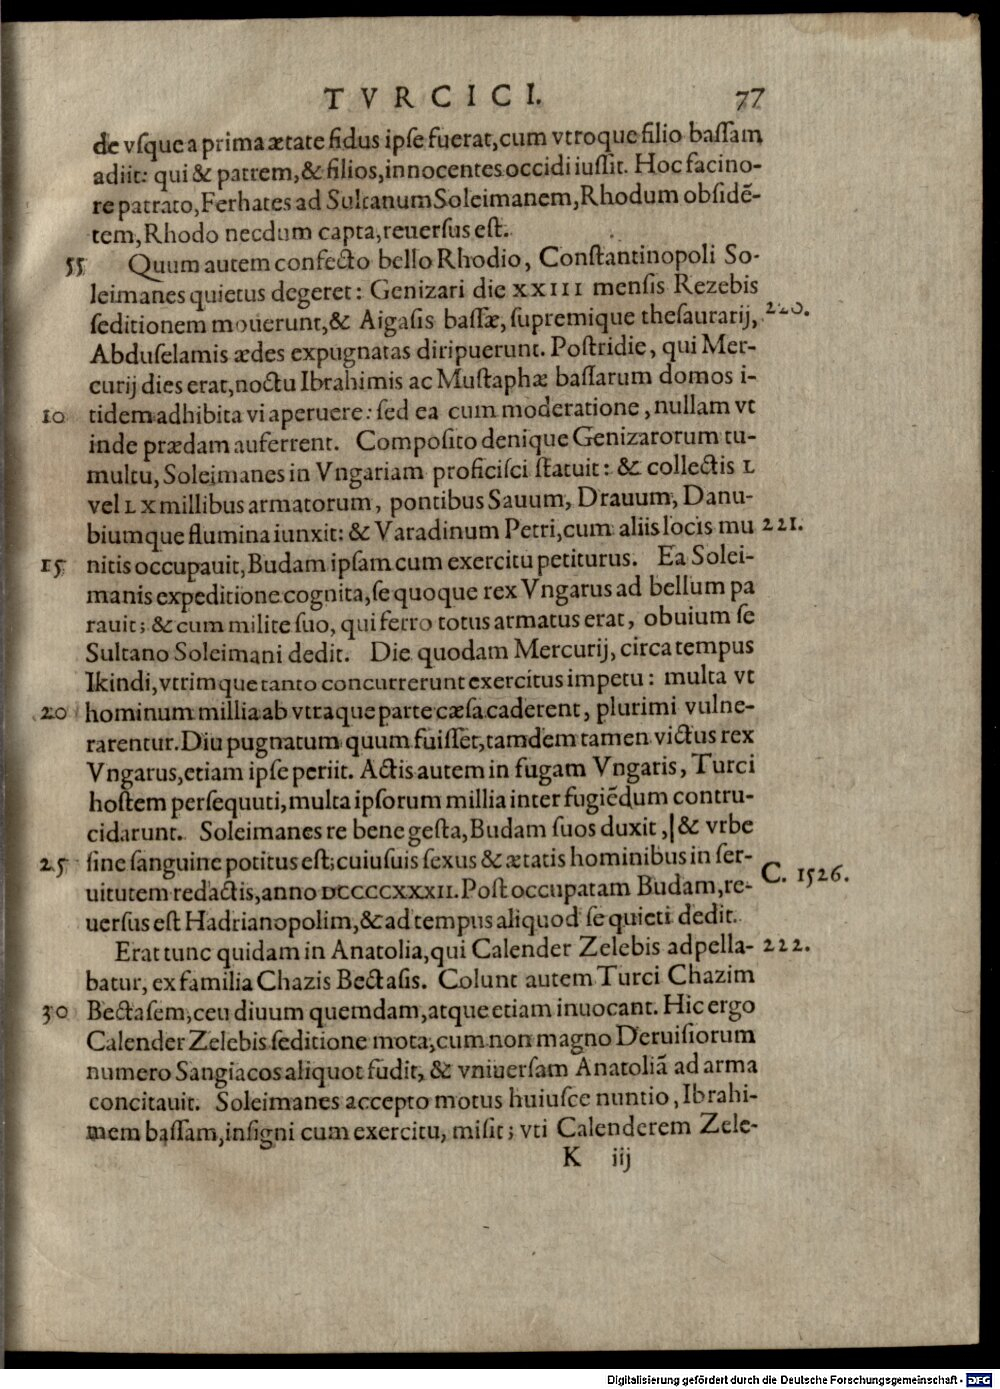 TVRCICI. 77
de vſque a prima ætate fidus ipſe fuerat, cum vtroque filio baſſam
adiit: qui & patrem, & filios, innocentes occidi iuſſit. Hoc facino-
re patrato, Ferhates ad Sultanum Soleimanem, Rhodum obſidē-
tem, Rhodo necdum capta, reuerſus eſt.
55 Quum autem confecto bello Rhodio, Conſtantinopoli So-
leimanes quietus degeret: Genizari die XXIII menſis Rezebis
ſeditionem mouerunt, & Aigaſis baſſæ, ſupremique theſaurarij, 220.
Abduſelamis ædes expugnatas diripuerunt. Poſtridie, qui Mer-
curij dies erat, noctu Ibrahimis ac Muſtaphæ baſſarum domos i-
10 tidem adhibita vi aperuere: ſed ea cum moderatione, nullam vt
inde prædam auferrent. Compoſito denique Genizarorum tu-
multu, Soleimanes in Vngariam proficiſci ſtatuit: & collectis L
vel LX millibus armatorum, pontibus Sauum, Drauum, Danu-
biumque flumina iunxit: & Varadinum Petri, cum aliis locis mu 221.
15 nitis occupauit, Budam ipſam cum exercitu petiturus. Ea Solei-
manis expeditione cognita, ſe quoque rex Vngarus ad bellum pa
rauit; & cum milite ſuo, qui ferro totus armatus erat, obuium ſe
Sultano Soleimani dedit. Die quodam Mercurij, circa tempus
Ikindi, vtrimque tanto concurrerunt exercitus impetu: multa vt
20 hominum millia ab vtraque parte cæſa caderent, plurimi vulne-
rarentur. Diu pugnatum quum fuiſſet, tamdem tamen victus rex
Vngarus, etiam ipſe periit. Actis autem in fugam Vngaris, Turci
hoſtem perſequuti, multa ipſorum millia inter fugiēdum contru-
cidarunt. Soleimanes re bene geſta, Budam ſuos duxit, |& vrbe
25 ſine ſanguine potitus eſt; cuiuſuis ſexus & ætatis hominibus in ſer-
uitutem redactis, anno DCCCCXXXII. Poſt occupatam Budam, re- C. 1526.
uerſus eſt Hadrianopolim, & ad tempus aliquod ſe quieti dedit.
Erat tunc quidam in Anatolia, qui Calender Zelebis adpella- 222.
batur, ex familia Chazis Bectaſis. Colunt autem Turci Chazim
30 Bectaſem, ceu diuum quemdam, atque etiam inuocant. Hic ergo
Calender Zelebis ſeditione mota, cum non magno Deruiſiorum
numero Sangiacos aliquot fudit, & vniuerſam Anatoliā ad arma
concitauit. Soleimanes accepto motus huiuſce nuntio, Ibrahi-
mem baſſam, inſigni cum exercitu, miſit; vti Calenderem Zele-
K iij
Digitalisierung gefördert durch die Deutsche Forschungsgemeinschaft - DFG